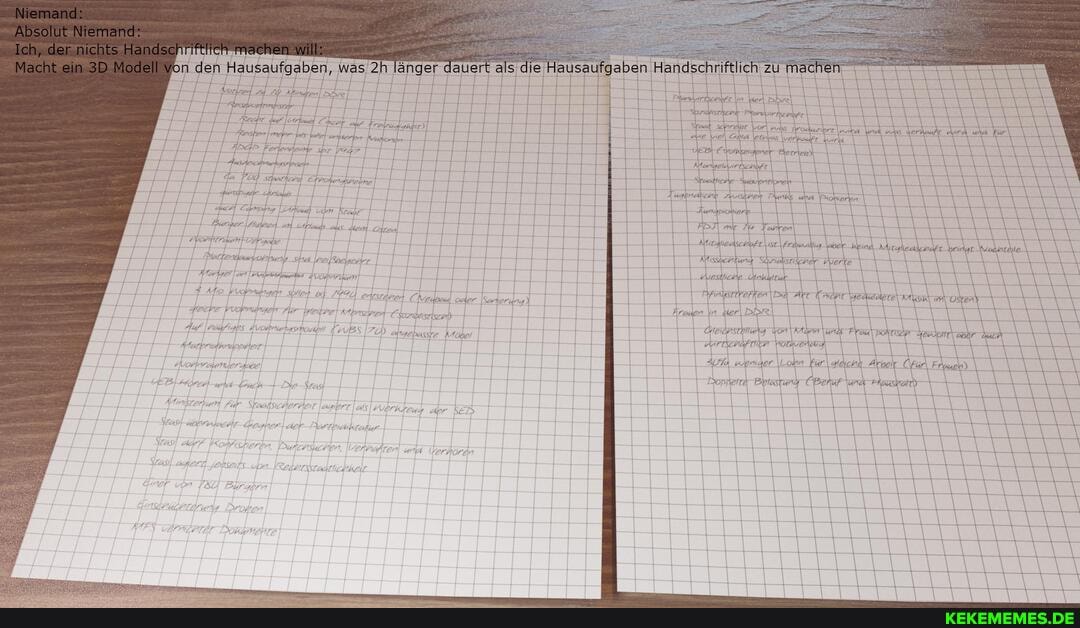 Niemand:
Absolut Niemand:
Ich, der nichts Handschriftlich machen will:
Macht ein 3D Modell von den Hausaufgaben, was 2h länger dauert als die Hausaufgaben Handschriftlich zu machen
Notizen zu 10 Minuten DDR
Reiseweltmeister
Recht auf Urlaub (nicht auf Freizügigkeit)
Reisten mehr als alle anderen Nationen
FDGB Ferienheime seit 1947
Auszeichnungsreisen
Ca 700 staatliche Erholungsheime
günstiger Urlaub
auch Camping Urlaub vom Staat
Bürger fliehen im Urlaub aus dem Osten
Wohnraum-Vergabe
Plattenbauwohnung sind heißbegehrt
Mangel an Wohnraum
3 Mio Wohnungen sollen bis 1990 entstehen (Neubau oder Sanierung)
gleiche Wohnungen für gleiche Menschen (sozialistisch)
Auf häufiges Wohnungsmodell (WBS 70) angepasste Möbel
Materialknappheit
Wohnraumvergabe
VEB Horch und Guck - Die Stasi
Ministerium für Staatssicherheit agiert als Werkzeug der SED
Stasi überwacht Gegner der Parteidiktatur
Stasi darf Konfiszieren, Durchsuchen, Verhaften und Verhören
Stasi agiert jenseits von Rechtsstaatlichkeit
Einer von 180 Bürgern
Einschüchterung Drohen
MFS vernichtet Dokumente
Planwirtschaft in der DDR
Sozialistische Planwirtschaft
Staat schreibt vor was produziert wird und was verkauft wird und für
wie viel Geld etwas verkauft wird
VEB (Volkseigener Betrieb)
Mangelwirtschaft
Staatliche Subventionen
Jugendliche zwischen Punks und Pionieren
Jungpioniere
FDJ mit 14 Jahren
Mitgliedschaft ist freiwillig aber keine Mitgliedschaft bringt Nachteile
Missachtung Sozialistischer Werte
Westliche Unkultur
Pfingsttreffen Die Art (nicht geduldete Musik im Osten)
Frauen in der DDR
Gleichstellung von Mann und Frau politisch gewollt aber auch
wirtschaftlich notwendig
30% weniger Lohn für gleiche Arbeit (für Frauen)
Doppelte Belastung (Beruf und Haushalt)
KEKEMEMES.DE